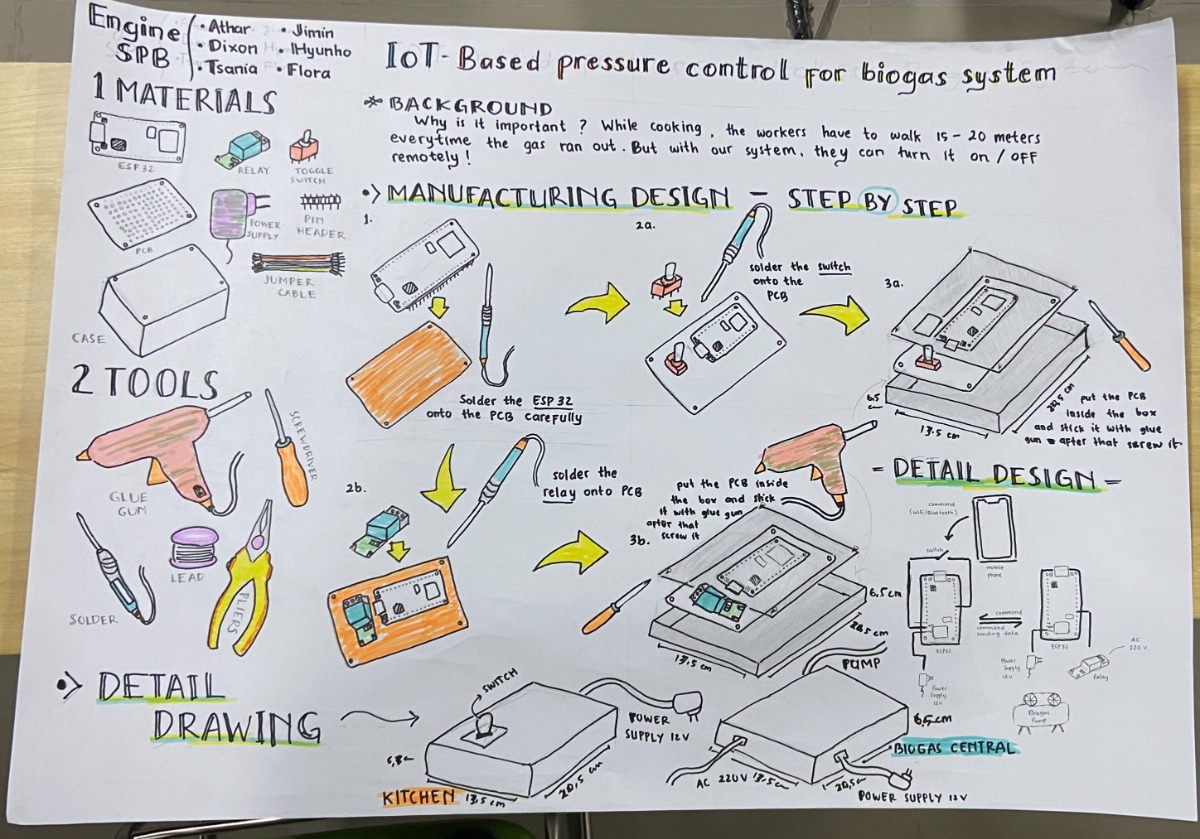 Engine
SPB
• Athar
• Dixon
• Tsania
• Jimin
• Hyunho
• Flora
IoT-Based pressure control for biogas system
1 MATERIALS
ESP 32
RELAY
TOGGLE
SWITCH
PCB
POWER
SUPPLY
PIN
HEADER
JUMPER
CABLE
CASE
2 TOOLS
GLUE
GUN
SCREWDRIVER
SOLDER
LEAD
PLIERS
* BACKGROUND
Why is it important ? While cooking, the workers have to walk 15 - 20 meters
everytime the gas ran out. But with our system, they can turn it on / OFF
remotely !
•> MANUFACTURING DESIGN - STEP BY STEP
1.
Solder the ESP 32
onto the PCB carefully
2a.
solder the switch
onto the
PCB
3a.
6.5
13.5 cm
20,5 cm
put the PCB
inside the box
and stick it with glue
gun after that screw it
2b.
solder the
relay onto PCB
put the PCB inside
the box and stick
it with glue gun
after that
screw it
3b.
6,5cm
20,5 cm
13,5 cm
= DETAIL DESIGN =
command
(wifi/Bluetooth)
switch
mobile
phone
command
command
sending data
ESP32
ESP32
Power
Supply
12V
Power
Supply
12V
Relay
AC
220 V
Biogas
Pump
•> DETAIL
DRAWING
SWITCH
POWER
SUPPLY 12V
13.5 cm
20,5 cm
KITCHEN
PUMP
6,5cm
• BIOGAS CENTRAL
AC 220V
13.5cm
20,5cm
POWER SUPPLY 12V